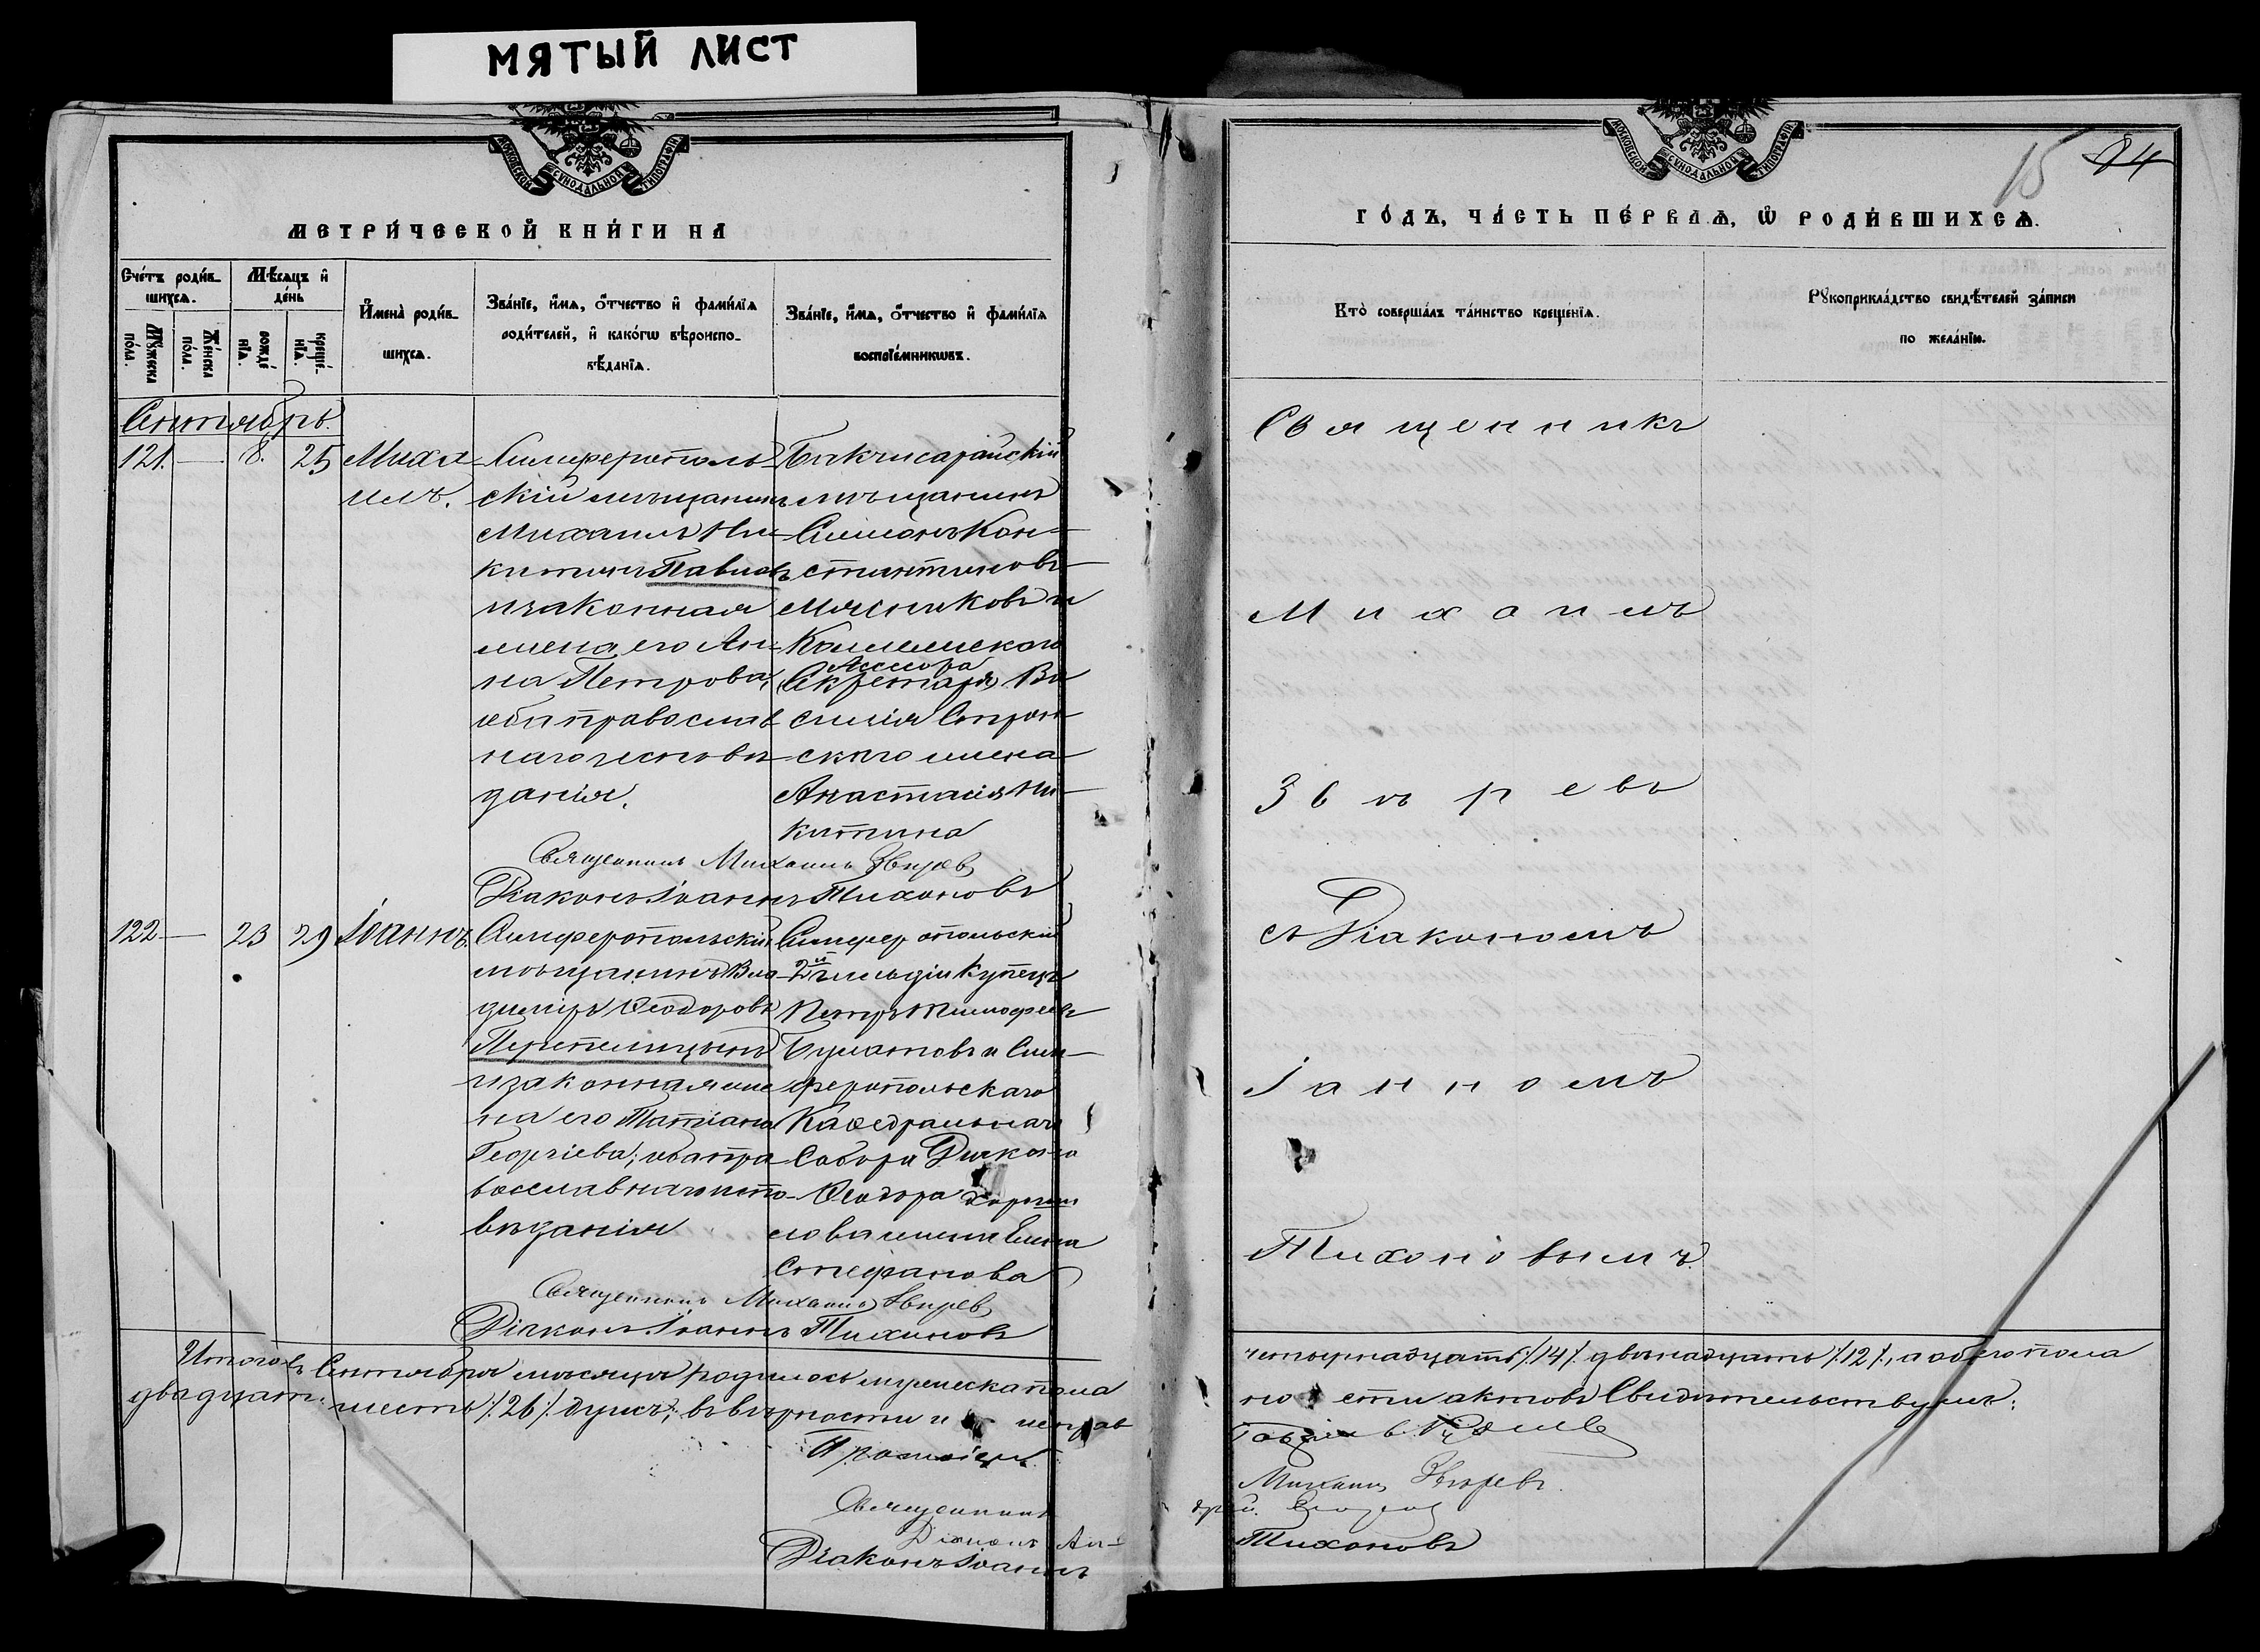 МЯТЫЙ ЛИСТ
МОСКОВСКОЙ СѴНОДАЛЬНОЙ ТИПОГРАФІИ
МЕТРИ́ЧЕСКОЙ КНИ́ГИ НА
Сче́тъ роди́в-
шихсѧ.
Мѣ́сѧцъ и҆
де́нь
Мꙋ́жеска
по́ла.
Же́нска
по́ла.
рожде́
нїѧ.
креще́-
нїѧ.
И҆мена̀ роди́в-
шихсѧ.
Зва́нїе, и҆́мѧ, ѻ҆́тчество и҆ фами́лїѧ
роди́телей, и҆ како́гѡ вѣроиспо-
вѣ́данїѧ.
Зва́нїе, и҆́мѧ, ѻ҆́тчество и҆ фами́лїѧ
воспрїе́мникѡвъ.
Сентябрь.
121. — 8. 25
Миха
илъ.
Симферополь-
скій мѣщанинъ
Михаилъ Ни-
китинъ Павловъ
и законная
жена его Ан-
на Петрова,
оба православ
наго исповѣ
данія.
Бахчисарайскій
мѣщанинъ
Симеонъ Кон-
стантиновъ
Мясниковъ и
Коллежскаго
Ассесора
Секретаря Ва
силія
скаго жена
Анастасія Ни-
китина
Священникъ Михаилъ Звѣревъ
Діаконъ Іоаннъ Тихоновъ
122 — 23 29
Іоаннъ.
Симферопольскій
мѣщанинъ Вла
диміръ Ѳеодоровъ
Перепелицынъ
и законная же
на его Татіана
Георгіева; оба пра
вославнаго испо-
вѣданія
Симферопольскій
2й гильдіи купецъ
Петръ Тимофеевъ
Булатовъ и Сим-
феропольскаго
Каѳедральнаго
Собора Діакона
Ѳеодора
жена Елена
Стефанова
Священникъ Михаилъ Звѣревъ
Діаконъ Іоаннъ Тихоновъ
Итого въ Сентябрѣ мѣсяцѣ родилось мужеска пола
двадцать шесть /26/ душъ; въ вѣрности и исправ
Протоіерей
Священникъ
Діаконъ Ан-
Діаконъ Іоаннъ
МОСКОВСКОЙ СѴНОДАЛЬНОЙ ТИПОГРАФІИ
15 84
ГО́ДЪ, ЧА́СТЬ ПЕ́РВАѦ, Ѡ҆ РОДИ́ВШИХСѦ.
Кто̀ соверша́лъ та́инство креще́нїѧ.
Рꙋкоприкла́дство свидѣ́телей за́писи
по жела́нїю.
Священникъ
Михаилъ
Звѣревъ
съ Діакономъ
Іанномъ
Тихоновымъ.
четырнадцать /14/ двѣнадцать /12/, а обоего пола
но сти актовъ Свидѣтельствуемъ:
Михаилъ Звѣревъ.
Тихоновъ